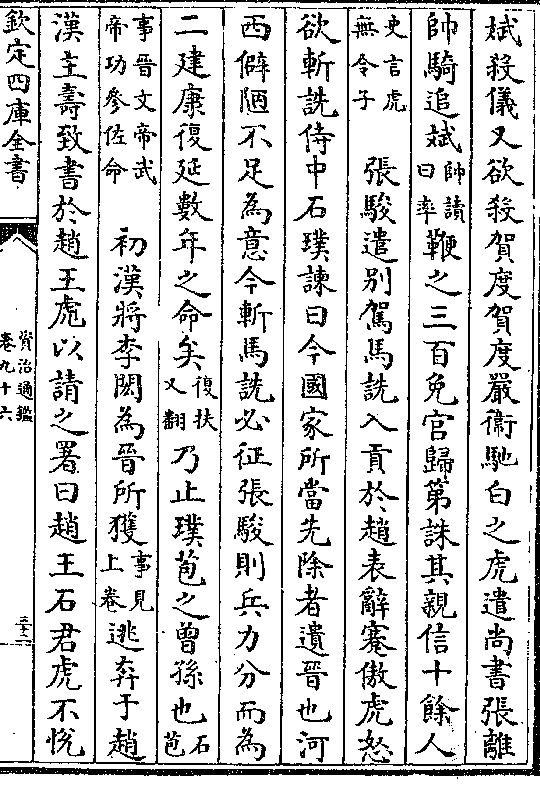 斌殺儀又欲殺賀度賀度嚴衛馳白之虎遣尚書張離
帥騎追斌帥讀曰率鞭之三百免官歸第誅其親信十餘人
史言虎無令子 張駿遣别駕馬詵入貢於趙表辭蹇傲虎怒
欲斬詵侍中石璞諫曰今國家所當先除者遺晉也河
西僻陋不足為意今斬馬詵必征張駿則兵力分而為
二建康復延數年之命矣復扶又翻乃止璞苞之曾孫也石苞
事晉文帝武帝功參佐命 初漢將李閎為晉所獲事見上卷逃奔于趙
漢主壽致書於趙王虎以請之署曰趙王石君虎不悦
欽定四庫全書
資治通鑑
卷九十六